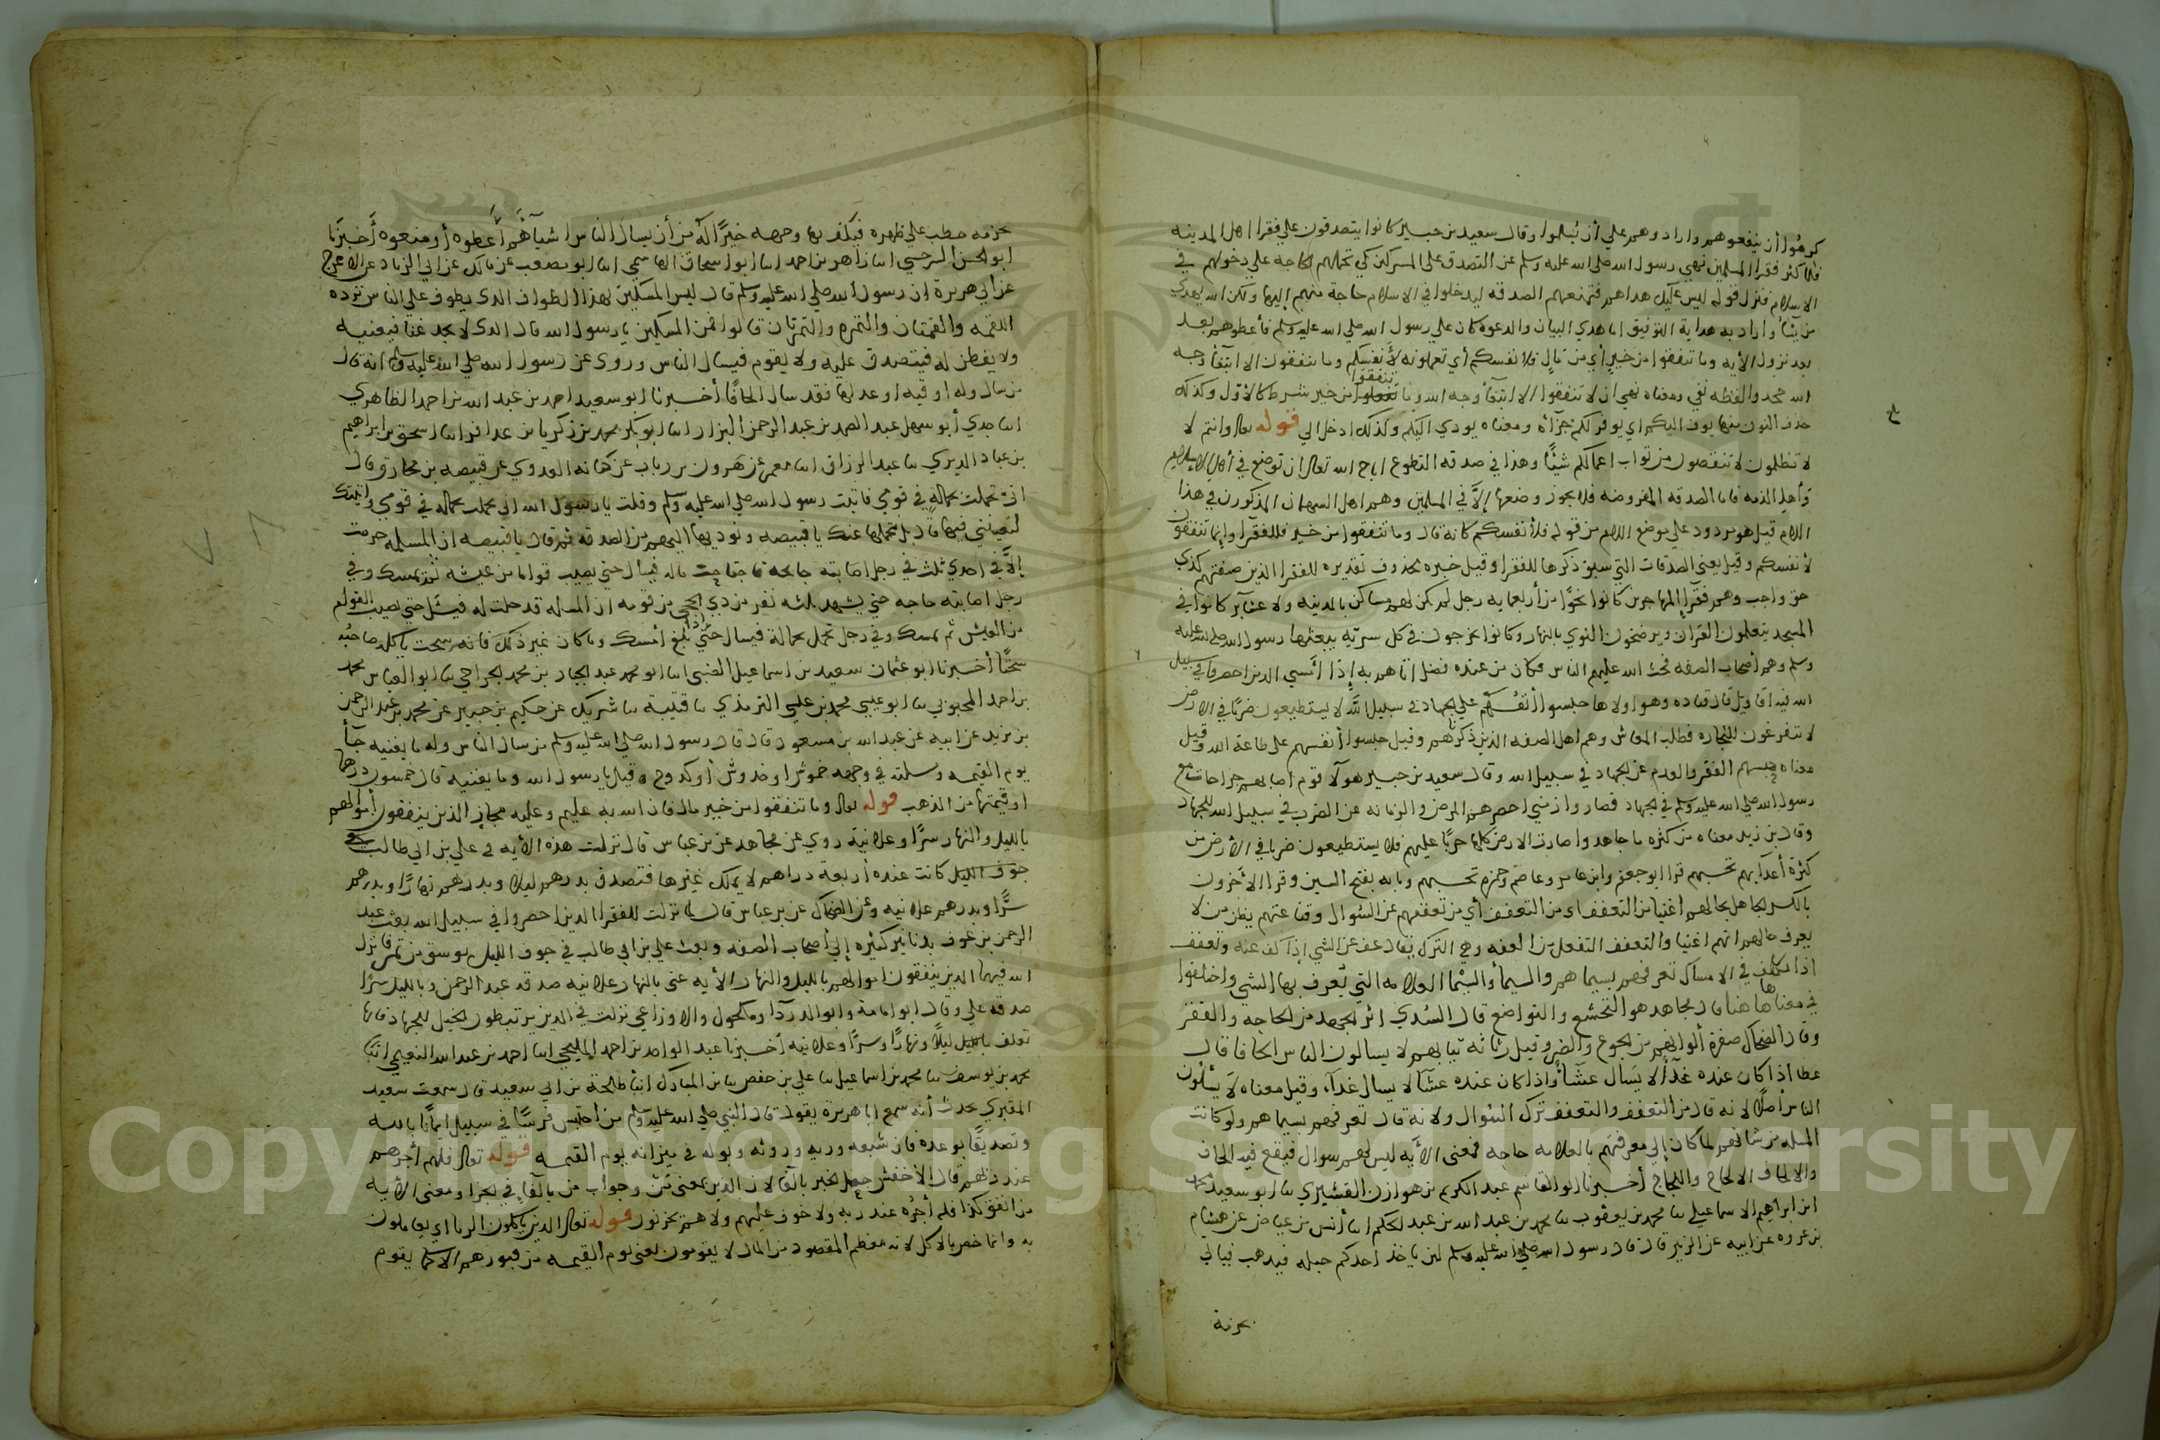 كرهوا أن ينفعوهم وارادوهم علي أن يسلموا وقال سعيد بن جبير كانوا يتصدقون علي فقرا اهل المدينه
فلما كثر فقرا المسلمين نهي رسول الله صلي الله عليه وسلم عن التصدق علي المسركين كي تحملهم الحاجة علي دخولهم في
الاسلام فنزل قوله ليس عليك هداهم فتمنعهم الصدقه ليدخلوا في الاسلام حاجة منهم اليها ولكن الله يهدي
من يشأ وأراد به هداية التوفيق اما هدي البيان والدعوه كان علي رسول الله صلي الله عليه وسلم فأعطوهم بعد
بعد نزول الأيه وما تنفقوا من خير أي من مال فلا نفسكم أي تعملونه لأنفسكم وما تنفقون الا ابتغأ وجه
الله جحد والفظه نفي ومعناه نهي ان لا تنفقوا الا ابتغأ وجه الله وما تنفقوا من خير شرط كالأول وكذلك
حذف النون منها يوف اليكم اي يوفر لكم جزآئه ومعناه يودي اليكم وكذلك ادخل الي قوله تعالى وانتم لا
لا تظلمون لا تنقصون من ثواب اعمالكم شيئًا وهذا في صدقه التطوع اباح الله تعالى ان توضع في أهل الاسلام
وأهل الذمه فاما الصدقه المفروضه فلا يجوز وضعها إلا في المسلمين وهم اهل السهمان المذكورن في هذا
اللام قيل هو مردود علي موضع اللام من قوله فلأنفسكم كانه قال وما تنفقوا من خير فللفقرا وإنما تنفقون
لأنفسكم وقيل يعني الصدقات التي سبق ذكرها للفقرا وقيل خبره محذوف تقديره للفقرا الذين صفتهم كذي
حق واجب وهم فقرآ المهاجرين كانوا نحوًا من أربعمايه رجل لم يكن لهم مساكن بالمدينه ولا عشآير كانوا في
المسجد يتعلمون القران ويرضخون النوي بالنهار وكانوا يخرجون في كل سريه يبعثها رسول الله صلى الله عليه
وسلم وهم أصحاب الصفه فحث الله عليهم الناس فكان من عنده فضل اتاهم به إذا أمسي الذين احصروا في سبيل
الله فيه اقاويل قال قتاده وهؤلاء حبسوا أنفسهم علي الجهاد في سبيل الله لا يستطيعون ضربًا في الارض
لا يتفرغون للتجاره وطلب المعاش وهم اهل الصفه الذين ذكرناهم وقيل حبسوا أنفسهم علي طاعة الله وقيل
معناه حبسهم الفقر والعدم عن الجهاد في سبيل الله وقال سعيد بن جبير هولآ قوم اصابهم جراحات مع
رسول الله صلي الله عليه وسلم في الجهاد فصاروا زمني احصرهم المرض والزمانه عن الضرب في سبيل الله للجهاد
وقال بن زيد معناه من كثره ما جاهدوا صارت الارض كلها حربًا عليهم فلا يستطيعون ضربا في الأرض من
كثرة أعدآيهم تحسبهم قرا ابو جعفر وابن عامر وعاصم وحمزه تحسبهم وبابه بفتح السين وقرا الأخرون
بالكسر الجاهل بحالهم اغنيا من التعفف اي من التعفف أي من تعففهم عن السُوال وقناعتهم يظن من لا
يعرف حالهم انهم اغنيا والتعفف التفعل من العفه وهي الترك يقال عف عن الشي إذا كف عنه وتعفف
اذا تكلف في الامساك تعرفهم بسيماهم والسيمأ والسيمآ العلامه التي يُعرف بها الشي واختلفوا
في معناها هنا قال مجاهد هو التخشع والتواضع قال السُدي اثر الجهد من الحاجه والفقر
وقال الضحاك صفرة ألوانهم من الجوع والضر وقيل رثاثه ثيابهم لا يسالون الناس الحافا قال
عطا اذا كان عنده غدآً لا يسأل عشآ وإذا كان عنده عشآ لا يسال غدآ، وقيل معناه لا يسئلون
الناس اصلًا لانه قال من التعفف والتعفف ترك السُوال ولانه قال تعرفهم بسيماهم ولو كانت
المسله من شانهم لما كان إلي معرفتهم بالعلامه حاجه فمعني الأيه ليس لهم سوال فيقع فيه الحاف
والالحاف الالحاح واللجاج أخبرنا ابو القاسم عبد الكريم بن هوازن القشيري نا ابو سعيد محمد
ابن ابراهيم الاسماعيلي نا محمد بن يعقوب نا محمد بن عبد الله بن عبد الحكم انا أنس بن عياض عن هشام
بن عروه عن ابيه عن الزبير قال قال رسول الله صلي الله عليه وسلم لين ياخذ احدكم حبله فيذهب فياتي
بحزمة
بحزمه حطب علي ظهره فيكف بها وجهه خيرًا له من أن يسال الناس اشيآهم أعطوه أو منعوه أخبرنا
ابو الحسن السرخسي انا زاهر بن احمد انا ابو اسحاق الهاشمي انا ابو مصعب عن مالك عن ابي الزناد عن الاعرج
عن أبي هريرة ان رسول الله صلي الله عليه وسلم قال ليس المسكين بهذا الطواف الذي يطوف علي الناس ترده
اللقمه واللقمتان والتمره والتمرتان قالوا فمن المسكين يا رسول الله قال الذي لا يجد غنا فيغنيه
ولا يفطن له فيتصدق عليه ولا يقوم فيسال الناس وروي عن رسول الله صلي الله عليه وسلم انه قال
من سال وله اوقيه او عدلها فقد سال الحافًا أخبرنا ابو سعيد احمد بن عبد الله بن احمد الطاهري
انا جدي أبو سهل عبد الصمد بن عبد الرحمن البزار انا ابو بكر محمد بن زكريا بن عدافر انا اسحق بن ابراهيم
بن عباد الدبري نا عبد الرزاق انا معمر عن هرون بن رياب عن كنانه العدوي عن قبيصه بن مخارق قال
اني تحملت بحماله في قومي فاتيت رسول الله صلي الله عليه وسلم وقلت يا رسول الله اني تحملت بحماله في قومي واتيتك
لتعينني فيها قال بل نحملها عنك يا قبيصه ونوديها اليهم من الصدقه ثم قال يا قبيصه ان المسله حرمت
إلا في احدي ثلث في رجل اصابته جائحه فاجتاحت ماله فيسأل حتي يصيب قواما من عيشه ثم يمسك وفي
رجل اصابته حاجه حتي يشهد ثلثه نفر من ذي الحجي من قومه ان المسله قد حلت له فيسئل حتي يصيب القوام
من العيش ثم يمسك وفي رجل تحمل بحمالة فيسال حتي إذا بلغ أمسك وما كان غير ذلك فانه سحت ياكله صاحبه
سحتًا أخبرنا ابو عثمان سعيد بن اسماعيل الضبي انا ابو محمد عبد الجبار بن محمد الجراحي نا ابو العباس محمد
بن احمد المحبوبي نا ابو عيسي محمد بن عيسي الترمذي نا قتيبة نا شريك عن حكيم بن جبير عن محمد بن عبد الرحمن
بن يزيد عن ابيه عن عبد الله بن مسعود قال قال رسول الله صلي الله عليه وسلم من سال الناس وله ما يغنيه جآ
يوم القيمه ومسلته في وجهه خموش او خدوش أو كدوح ه قيل يا رسول الله وما يغنيه قال خمسون درهما
او قيمتها من الذهب قوله تعالى وما تنفقوا من خير مال فان الله به عليم وعليه مجاز الذين ينفقون أموالهم
بالليل والنهار سرًا وعلانيه روي عن مجاهد عن بن عباس قال نزلت هذه الأيه في علي بن ابي طالب
كانت عنده أربعة دراهم لا يملك غيرها فتصدق بدرهم ليلا وبدرهم نهارًا وبدرهم
سرًا وبدرهم علانيه وعن الضحاك عن بن عباس قال لما نزلت للفقرا الذين احصروا في سبيل الله بعث عبد
الرحمن بن عوف بدنانير كثيره إلي أصحاب الصفه وبعث علي بن ابي طالب في جوف الليل بوسق من تمر فانزل
الله فيهما الذين ينفقون اموالهم بالليل والنهار الأيه عني بالنهار علانيه صدقه عبد الرحمن وبالليل سرًا
صدقه علي وقال ابو امامة وابو الدردآ ومكحول والاوزاعي نزلت في الذين يرتبطون الخيل للجهاد فانها
تعلف ليلًا ونهارًا وسرًا وعلانيه أخبرنا عبد الواحد بن احمد المليحي انا احمد بن عبد الله النعيمي انبا
محمد بن يوسف نا محمد بن اسماعيل نا علي بن حفص نا بن المبارك انبا طلحة بن ابي سعيد قال سمعت سعيد
المقبري يحدث أنه سمع ابا هريرة يقول قال النبي صلي الله عليه وسلم من احتبس فرسًا في سبيل الله ايمانًا بالله
وتصديقًا بوعده فان شبعه وريه وروثه وبوله في ميزانه يوم القيمه قوله تعالى فلهم أجرهم
عند ربهم قال الأخفش جعل الخبر بالفآ لان الذين بمعني من وجواب من بالفآ في الجزا ومعني الأيه
من انفق كذا فله أجره عند ربه ولا خوف عليهم ولا هم يحزنون قوله تعالى الذين ياكلون الربا اي يعاملون
به وانما خص بالاكل لانه معظم المقصود من المال لا يقومون يعني يوم القيمه من قبورهم الا كما يقوم
Copyright © King Saud University